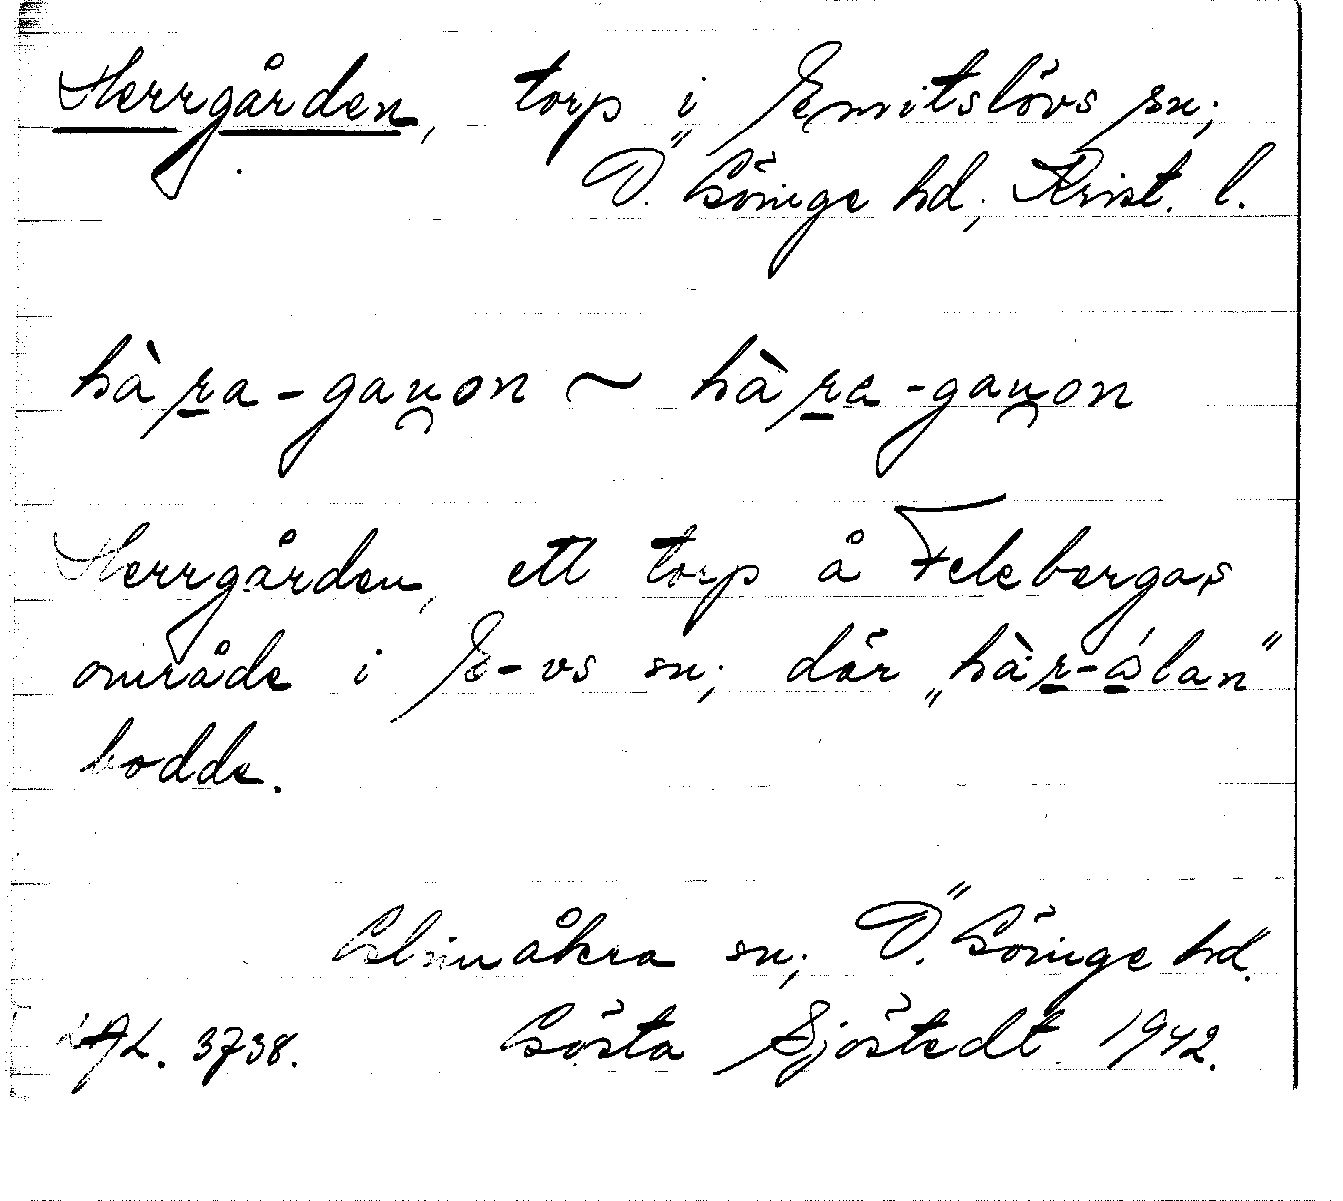 Herrgården, torp i Emitslövs sn;
Ö. Göinge hd, Krist. l.
hàra-gau̯on ~ hàra-gau̯on
Herrgården, ett torp å Felebergas
område i E-vs sn; där „hàr-álan”
bodde.
Glimåkra sn; Ö. Göinge hd.
LAL. 3738. Gösta Sjöstedt 1942.